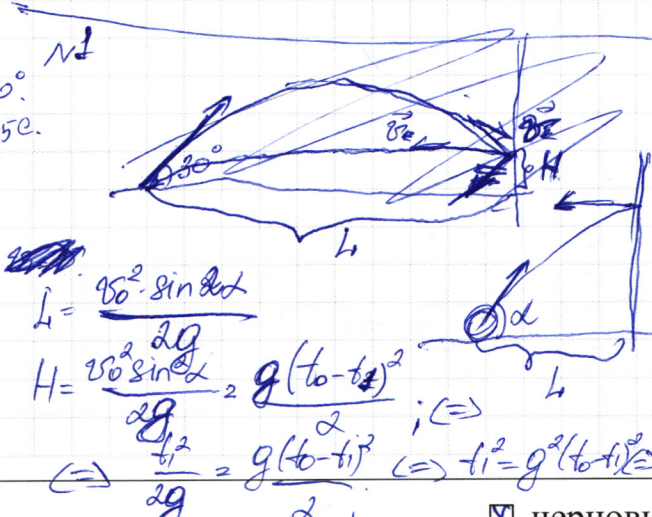 №1
0°
5с.
30°
v⃗к
v⃗к
H
L
α
L
L = v₀²·sin2α / 2g
H = v₀²sin²α / 2g = g(t₀-t₁)² / 2 ; (=>
(=> t₁² / 2g = g(t₀-t₁)² / 2 (=> t₁² = g²(t₀-t₁)² (=